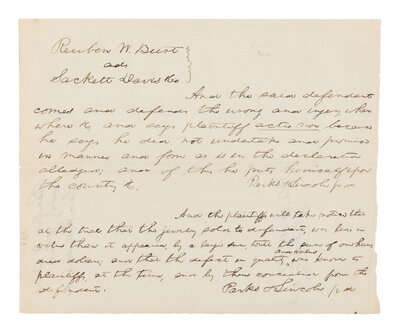 Reuben W. Burt
ads
Sackett Davis & Co
And the said defendant
comes and defends the wrong and injury when
where &c and says plaintiff actio non because
he says he did not undertake and promise
in manner and form as is in the declaration
alledged; and of this he puts himself upon
the country &c. Parks & Lincoln
And the plaintiff will take notice that
at the trial that the jewelry sold to defendant, was less in
value than it appeared by a large sum, to wit the sum of one hundred
dollars; and that the defect in quality and value was known to
plaintiff, at the time, and by them concealed from the
defendant. Parks & Lincoln